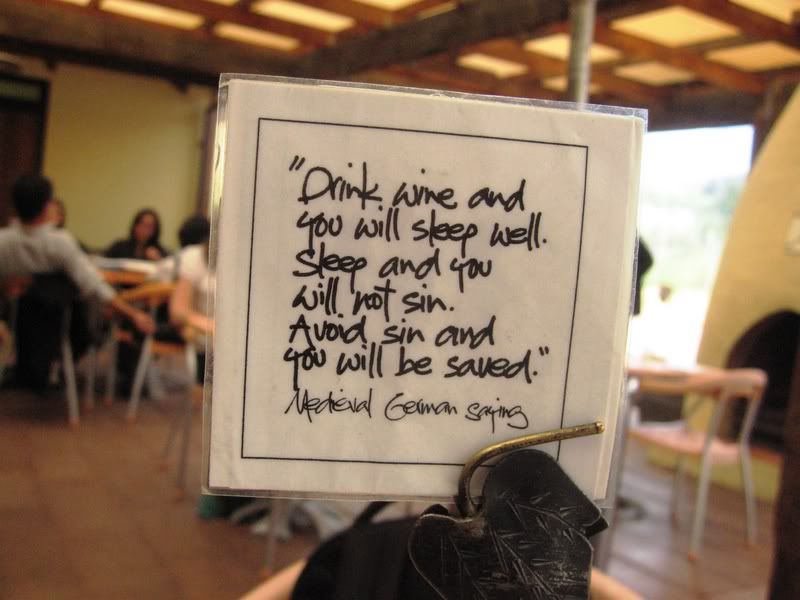 "Drink wine and
you will sleep well.
Sleep and you
will not sin.
Avoid sin and
you will be saved."
Medieval German saying